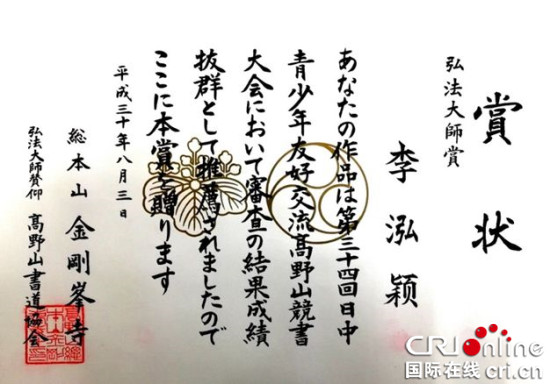 賞状
弘法大師賞
李泓颖
あなたの作品は第三十四回日中
青少年友好交流高野山競書
大会において審査の結果成績
抜群として推薦されましたので
ここに本賞を贈ります
平成三十年八月三日
総本山金剛峯寺
弘法大師賛仰 高野山書道協会
CRIonline
国际在线 cri.cn